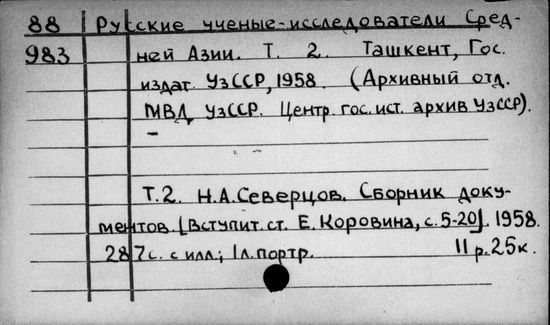 88 Русские ученые-исследователи Сред-
983 ней Азии. Т. 2. Ташкент, Гос.
издат. УзССР, 1958. (Архивный отд.
МВД УзССР. Центр. гос. ист. архив УзССР).
–
Т.2. Н.А.Северцов. Сборник доку-
ментов. [Вступит. ст. Е. Коровина, с. 5-20]. 1958.
287с. с илл.; 1л. портр. 11 р. 25к.